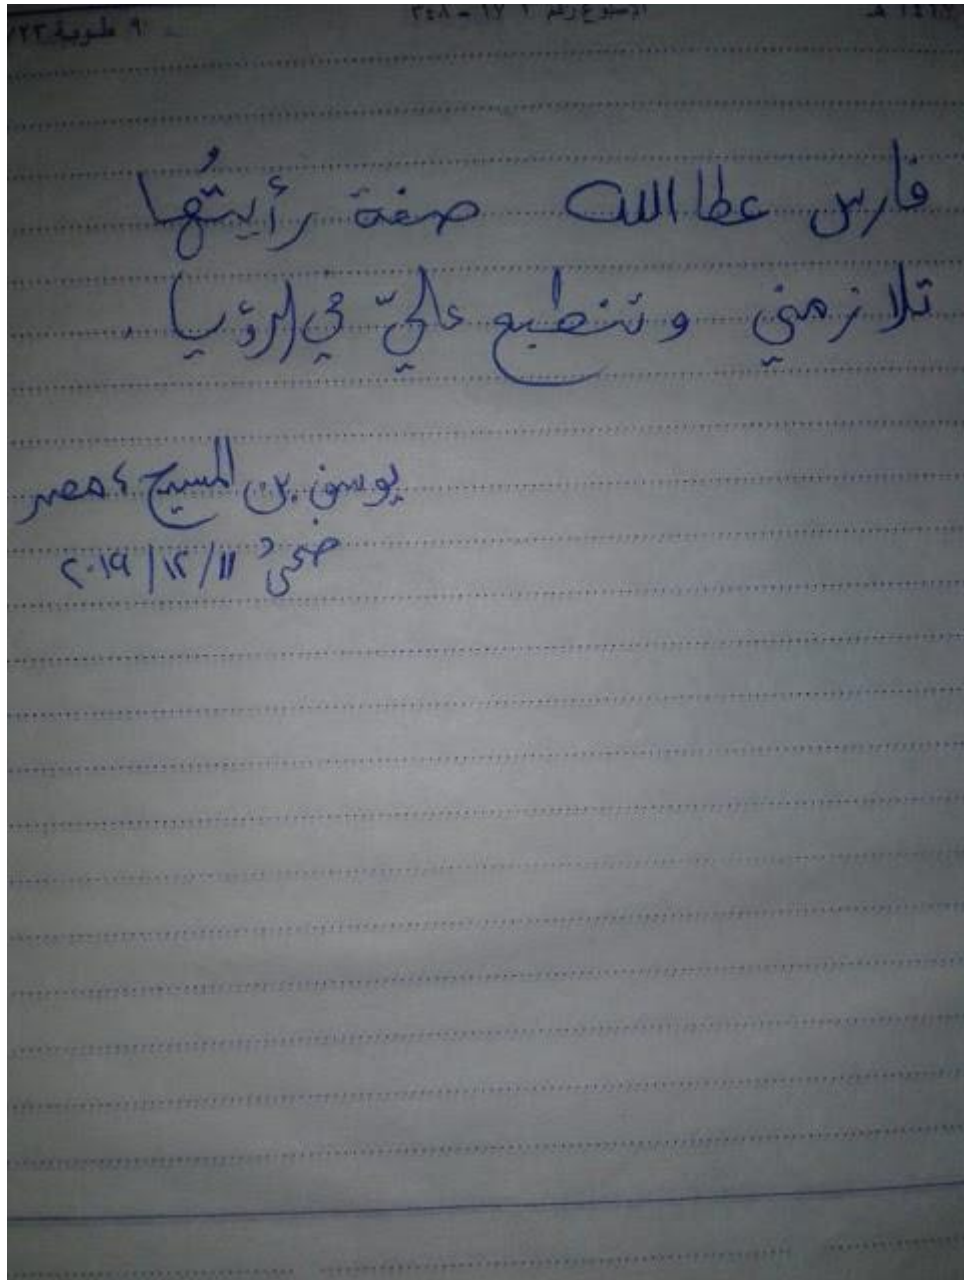 الأسبوع رقم ٣ ١٧ - ٣٤٨
٩ طوبة
فارس عطا الله صفة رأيتُها
تلازمني وتنطبع عليّ في الرؤيا .
يوسف بن المسيح ، مصر
ضحى ١١/١٢/٢٠١٩